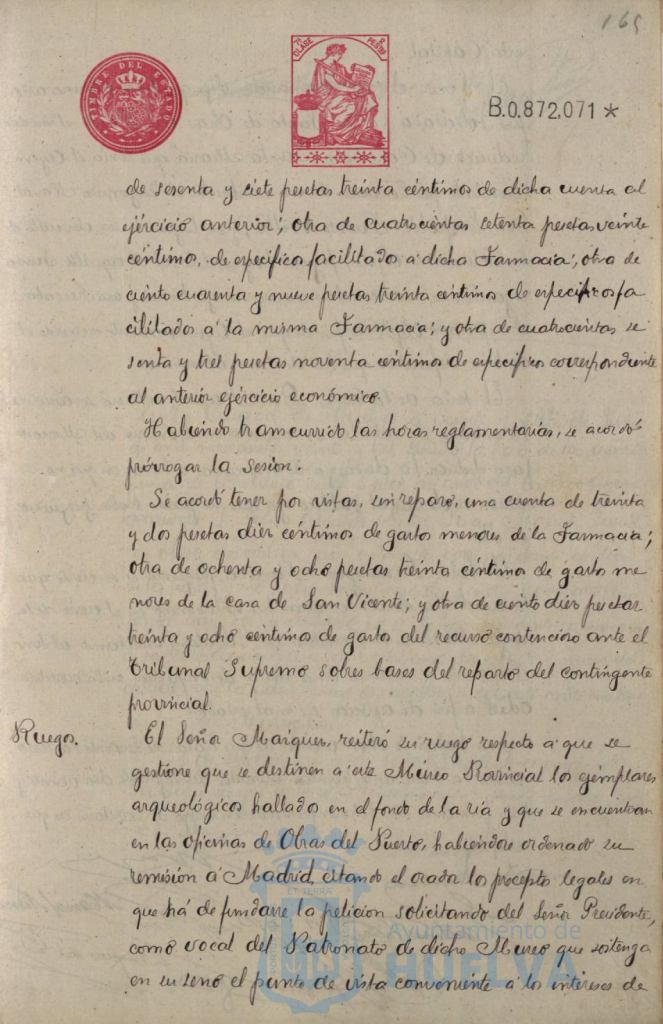 165
TIMBRE DEL ESTADO
7ª CLASE 8 PESETAS
B.0.872,071 *
de sesenta y siete pesetas treinta céntimos de dicha cuenta al
ejercicio anterior; otra de cuatrocientas setenta pesetas veinte
céntimos, de especificos facilitados a dicha Farmacia; otra de
ciento cuarenta y nueve pesetas treinta centimos de especificos fa
cilitados á la misma Farmacia; y otra de cuatrocientas se
senta y tres pesetas noventa céntimos de especificos correspondiente
al anterior ejercicio económico.
Habiendo transcurrido las horas reglamentarias, se acordó
prórrogar la sesion.
Se acordó tener por vistas, sin reparo, una cuenta de treinta
y dos pesetas diez céntimos de gastos menores de la Farmacia;
otra de ochenta y ocho pesetas treinta céntimos de gastos me
nores de la casa de San Vicente; y otra de ciento diez pesetas
treinta y ocho centimos de gastos del recurso contencioso ante el
Tribunal Supremo sobres bases del reparto del contingente
provincial.
Ruegos.
El Señor Marquez, reiteró su ruego respecto á que se
gestione que se destinen a este Museo Provincial los ejemplares
arqueológicos hallados en el fondo de la ria y que se encuentran
en las oficinas de Obras del Puerto, habiendose ordenado su
remisión á Madrid, citando el orador los preceptos legales en
que há de fundarse la peticion solicitando del Señor Presidente,
como vocal del Patronato de dicho Museo que sostenga
en su seno el punto de vista conveniente á los intereses de
Ayuntamiento de
HUELVA